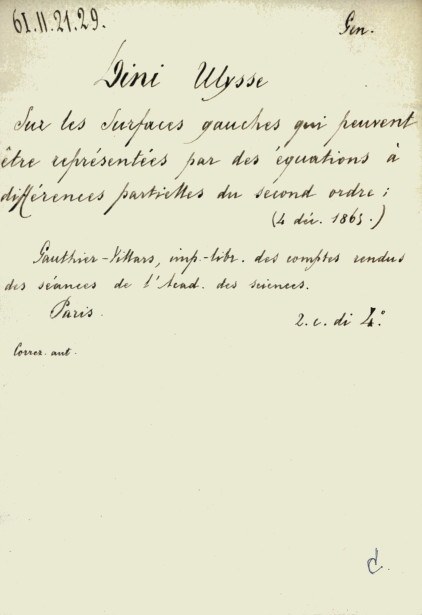 61.11.21.29.
Gen.
Dini Ulysse
Sur les surfaces gauches qui peuvent
être représentées par des équations à
différences partielles du second ordre;
(4 déc. 1865.)
Gauthier-Villars, imp.-libr. des comptes rendus
des séances de l'Acad. des sciences.
Paris.
2. c. di 4.°
Correz. aut.